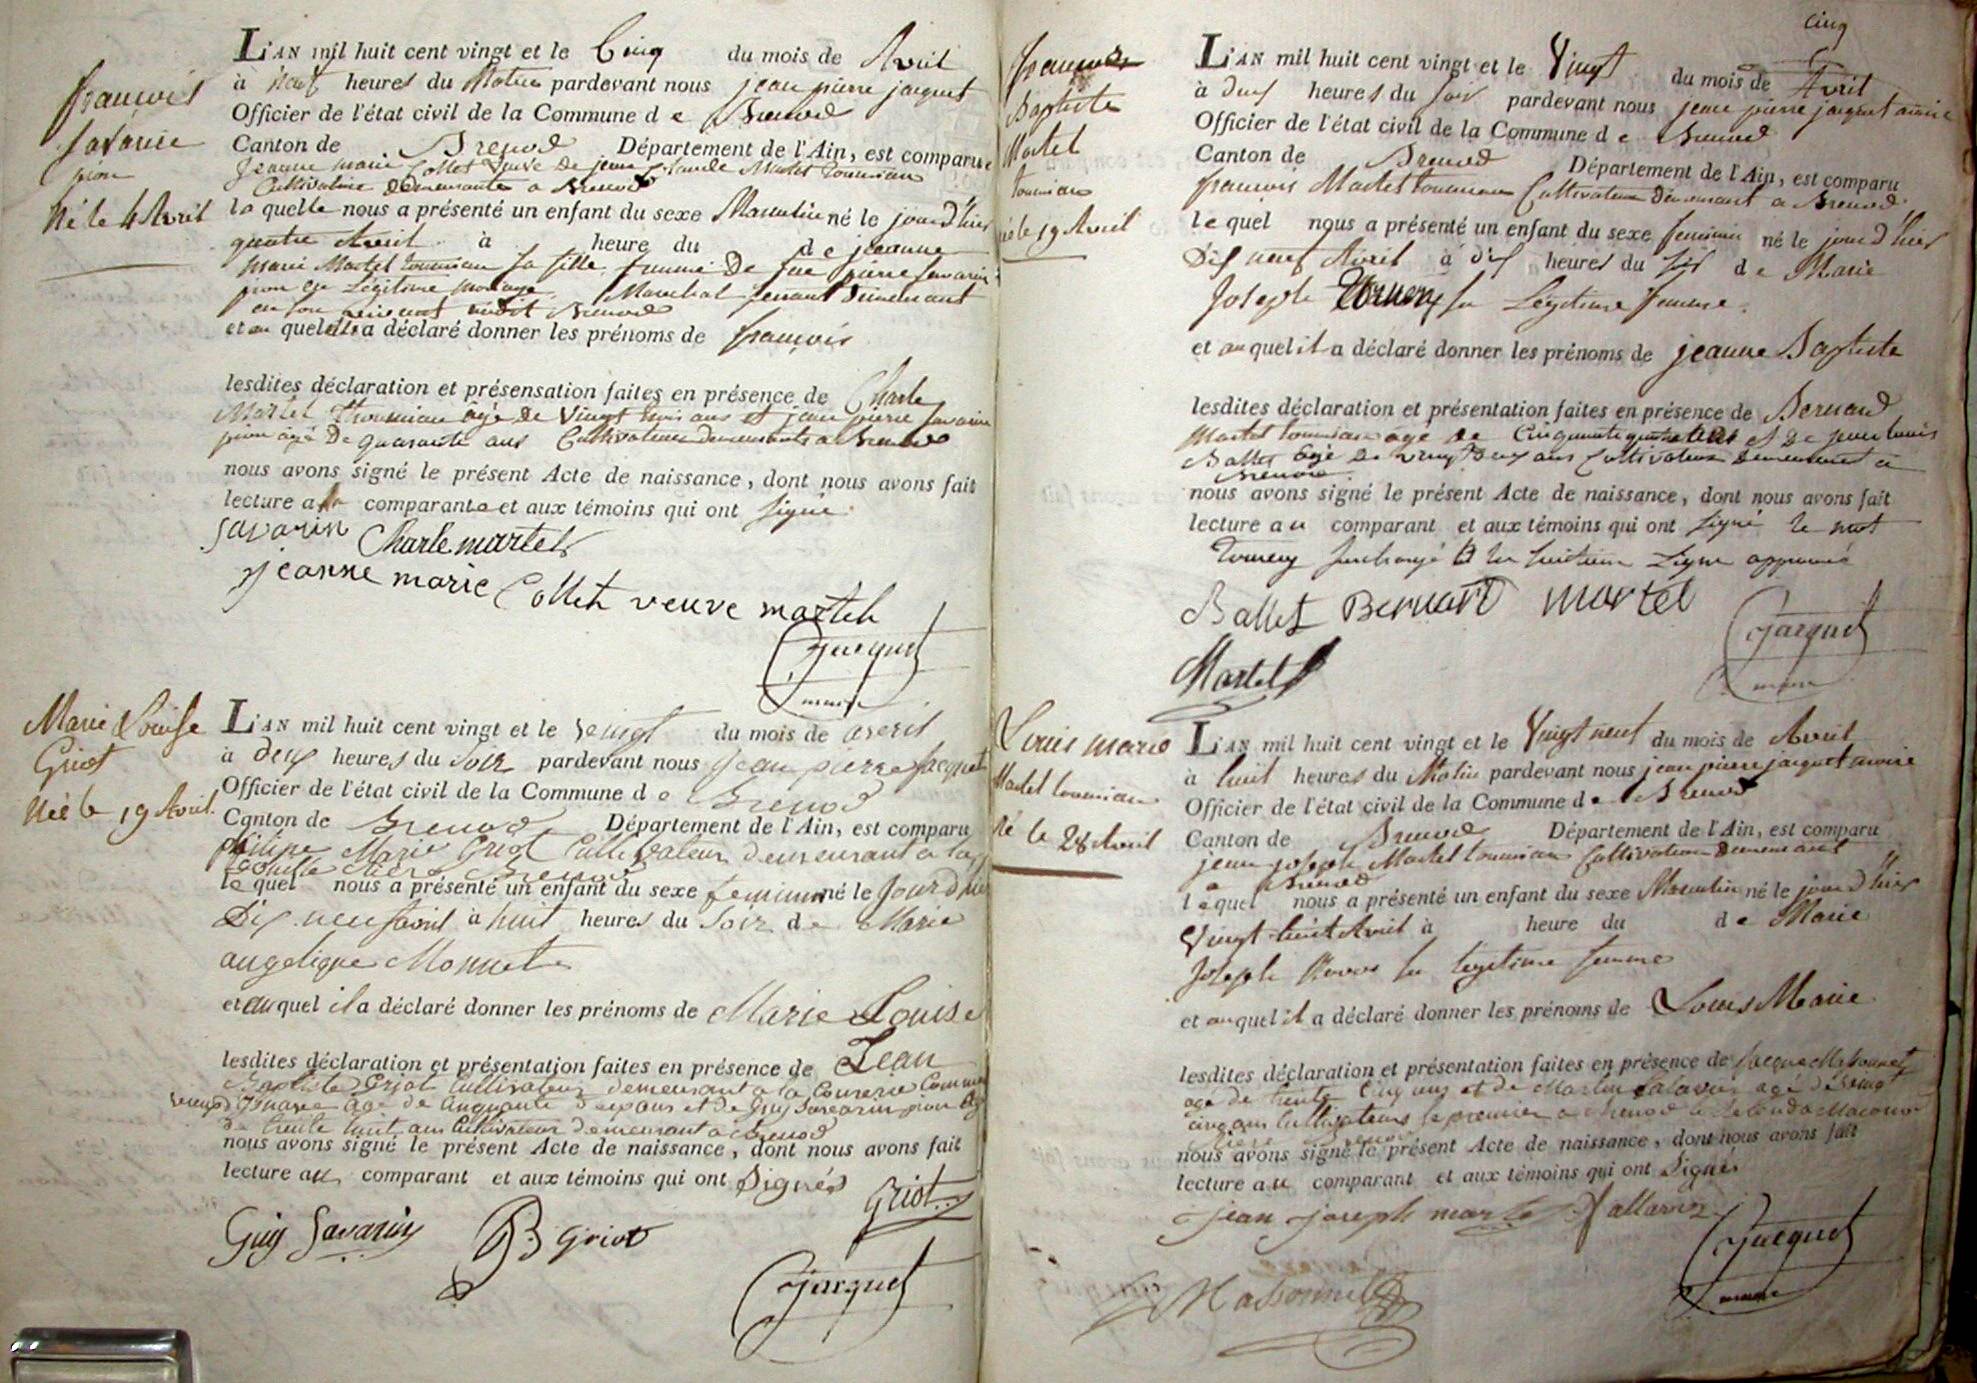 françois
savarin
pion
Né le 4 Avril
L'AN mil huit cent vingt et le Cinq du mois de Avril
à neuf heures du Matin pardevant nous jean pierre jacquet
Officier de l'état civil de la Commune de Brenod
Canton de Brenod Département de l'Ain, est comparue
Jeanne marie Collet Veuve De jean Claude Martel Tournian
Cultivatrice Demeurante a Brenod
la quelle nous a présenté un enfant du sexe Masculin né le jour d'hier
quatre Avril à heure du de jeanne
marie Martel tournian sa fille femme De pierre savarin
pion en Légitime mariage Marechal ferrant Demeurant
Brenod
et au quel elle a déclaré donner les prénoms de françois
lesdites déclaration et présensation faites en présence de Charle
Martel Thournian âgé de Vingt trois ans et jean pierre savarin
pion âgé De quarante ans Cultivateurs demeurants a Brenod
nous avons signé le présent Acte de naissance, dont nous avons fait
lecture a la comparante et aux témoins qui ont signé
savarin Charle martel
jeanne marie Collet veuve martel
Jacquet
maire
Marie Louise
Griot
Née le 19 Avril
L'AN mil huit cent vingt et le veingt du mois de averil
à deux heures du soir pardevant nous jean pierre jacquet
Officier de l'état civil de la Commune de Brenod
Canton de Brenod Département de l'Ain, est comparu
philipe Marie Griot Cultivateur demeurant a la
Brenod
le quel nous a présenté un enfant du sexe feminin né le jour d'hier
Dix neuf avril à huit heures du soir de Marie
angelique Monnet
et au quel il a déclaré donner les prénoms de Marie Louise
lesdites déclaration et présentation faites en présence de Jean
Baptiste Griot Cultivateur demeurant a la Couverie Commune
agé de cinquante deux ans et de Guy Savarin pion agé
de trente huit ans Cultivateur demeurant a Brenod
nous avons signé le présent Acte de naissance, dont nous avons fait
lecture au comparant et aux témoins qui ont Signés
Griot
Guy Savarin JB Griot
Jacquet
Jeanne
Baptiste
Martel
tournian
née le 19 Avril
cinq
L'AN mil huit cent vingt et le Vingt du mois de Avril
à deux heures du soir pardevant nous jean pierre jacquet maire
Officier de l'état civil de la Commune de Brenod
Canton de Brenod Département de l'Ain, est comparu
françois Martel tournian Cultivateur demeurant a Brenod
le quel nous a présenté un enfant du sexe feminin né le jour d'hier
Dix neuf Avril à dix heures du soir de Marie
Joseph sa Légitime femme
et au quel il a déclaré donner les prénoms de jeanne Baptiste
lesdites déclaration et présentation faites en présence de Bernard
Martel tournian âgé de Cinquante quatre ans et de jean louis
Ballet âgé de vingt deux ans Cultivateurs demeurant a
Brenod
nous avons signé le présent Acte de naissance, dont nous avons fait
lecture au comparant et aux témoins qui ont signé le mot
surchargé a la huitieme Ligne approuvé
Ballet Bernard martel
Jacquet
maire
Martel
Louis marie
Martel tournian
Né le 28 Avril
L'AN mil huit cent vingt et le Vingt neuf du mois de Avril
à huit heures du Matin pardevant nous jean pierre jacquet maire
Officier de l'état civil de la Commune de Brenod
Canton de Brenod Département de l'Ain, est comparu
jean joseph Martel tournian Cultivateur demeurant
a Brenod
le quel nous a présenté un enfant du sexe Masculin né le jour d'hier
Vingt huit Avril à heure du de Marie
Joseph sa légitime femme
et au quel il a déclaré donner les prénoms de Louis Marie
lesdites déclaration et présentation faites en présence de Jacque Massonnet
agé de trente Cinq ans et de Martin agé de vingt
cinq ans Cultivateurs le premier a Brenod le second a
Brenod
nous avons signé le présent Acte de naissance, dont nous avons fait
lecture au comparant et aux témoins qui ont Signés
jean joseph martel
Jacquet
maire
Massonnet